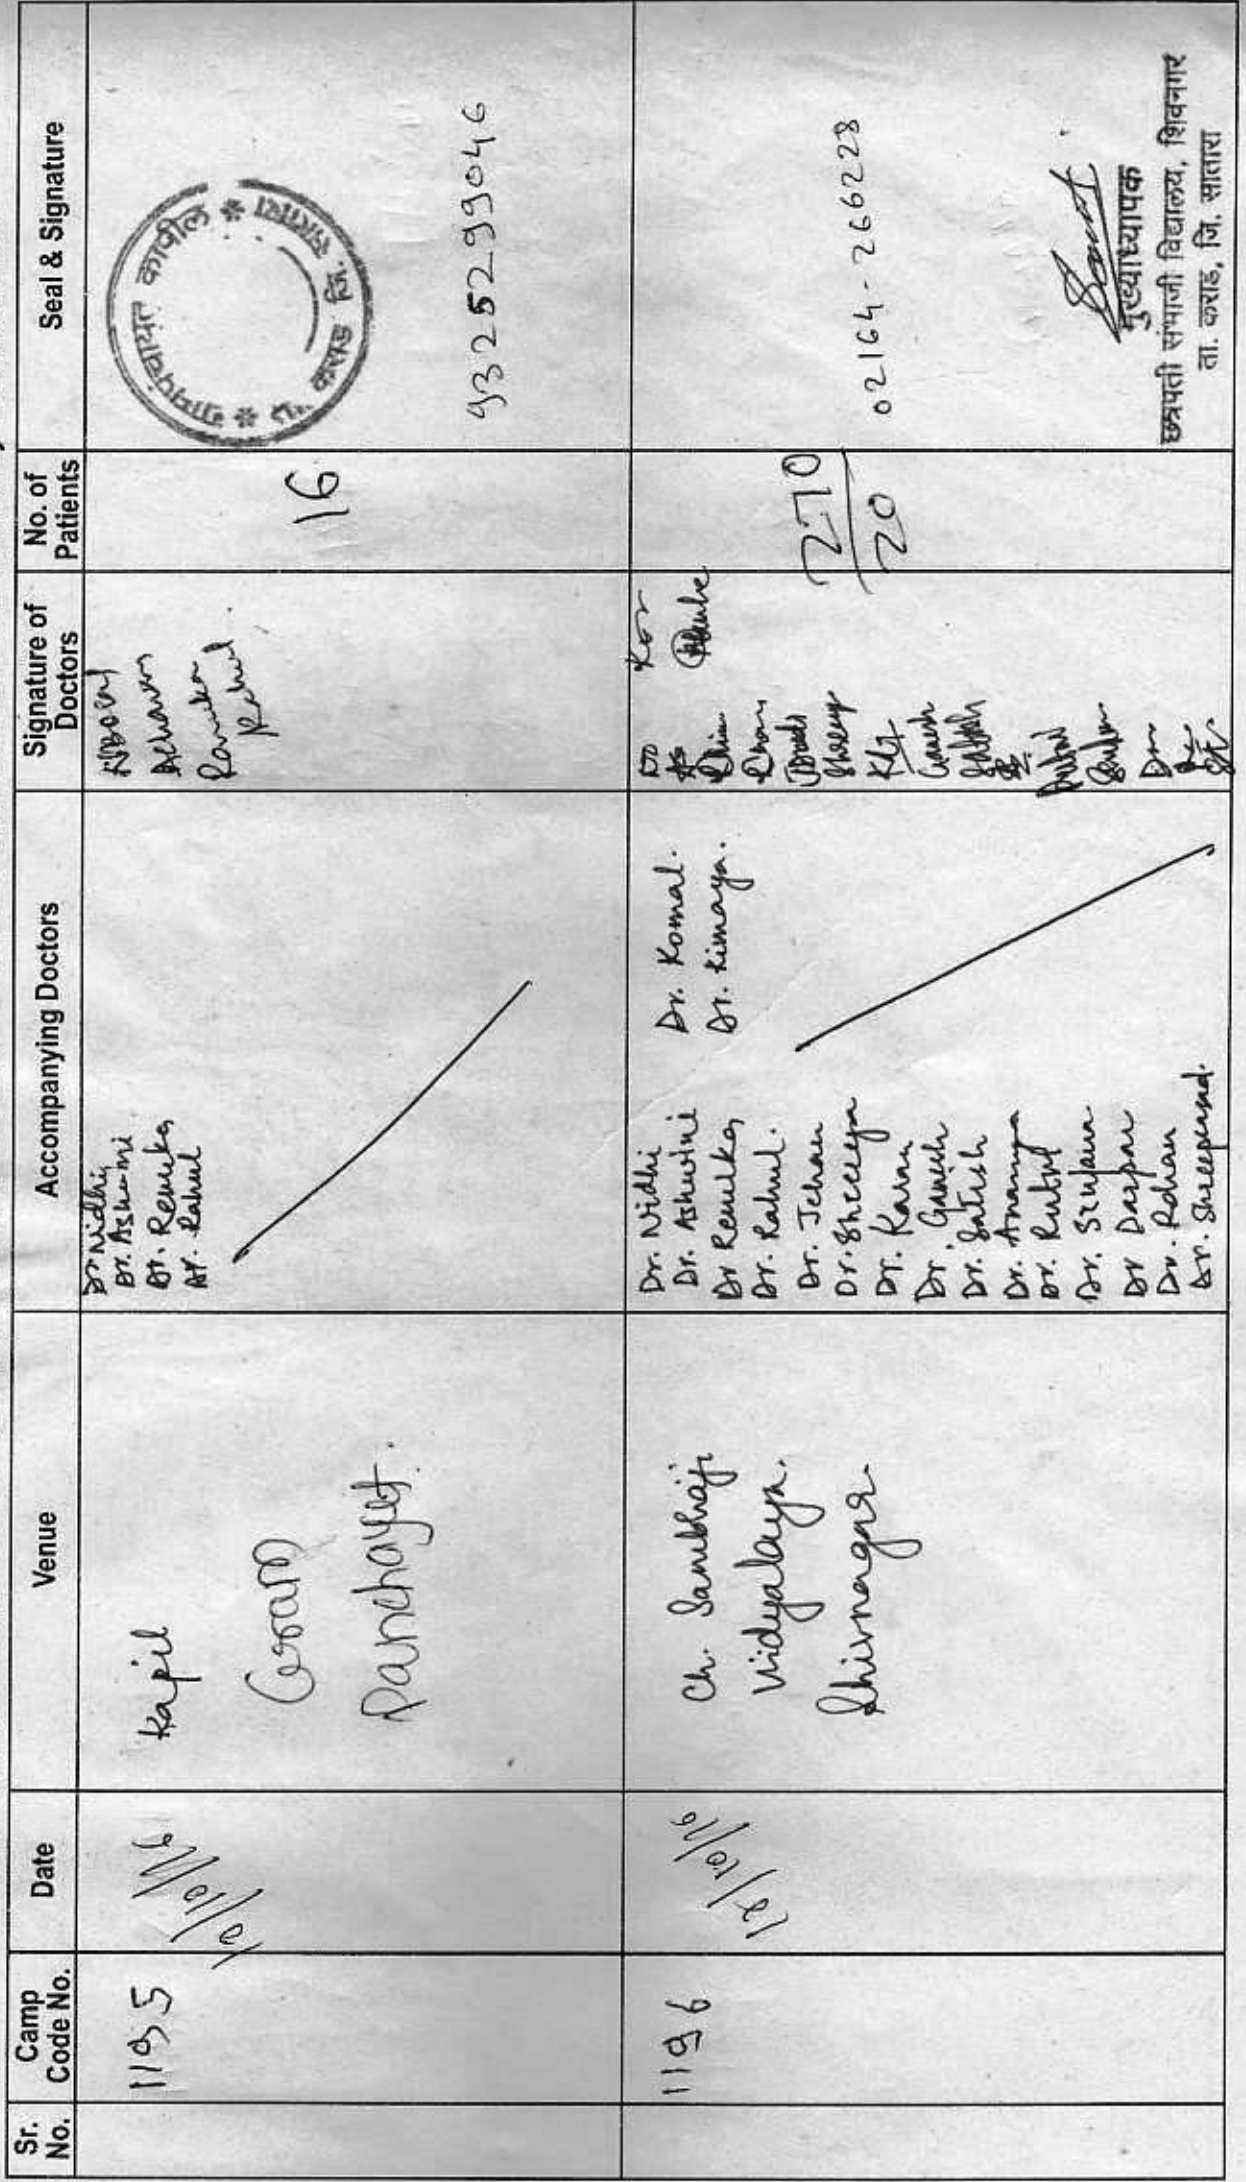 Sr. No.
Camp Code No.
Date
Venue
Accompanying Doctors
Signature of Doctors
No. of Patients
Seal & Signature
1195
10/10/16
Kapil
Gram
Panchayet.
Dr Nidhi
Dr. Ashwini
Dr. Renuka
Dr. Rahul
Renuka
Rahul.
16
ग्रामपंचायत कापील * ता. कराड जि. सातारा *
9325299046
1196
12/10/16
Ch. Sambhaji
Vidyalaya.
Shivnagar.
Dr. Nidhi
Dr. Ashwini
Dr Renuka
Dr. Rahul.
Dr. Jehan
Dr. Shreeya
Dr. Karan
Dr. Ganesh
Dr. Satish
Dr. Ananya
Dr. Rutuj
Dr. Srujan
Dr Darpan
Dr. Rohan
Dr. Shreeperad.
Dr. Komal.
Dr. Kimaya.
Shreeya
Ganesh
Satish
270
20
02164-266228
मुख्याध्यापक
छत्रपती संभाजी विद्यालय, शिवनगर
ता. कराड, जि. सातारा